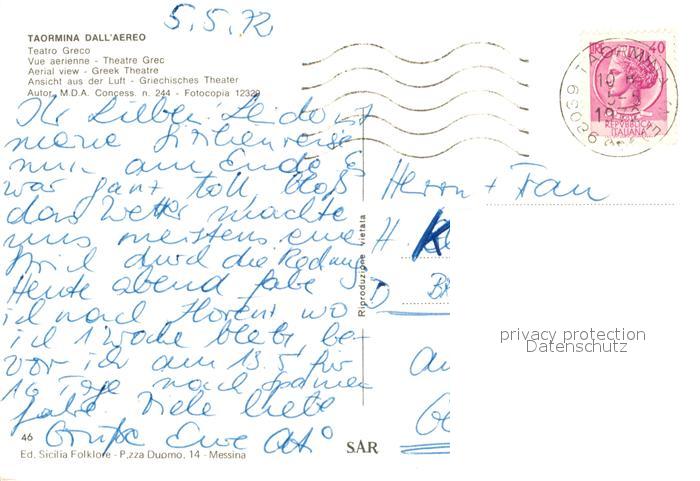 5.5.72
TAORMINA DALL'AEREO
Teatro Greco
Vue aerienne - Theatre Grec
Aerial view - Greek Theatre
Ansicht aus der Luft - Griechisches Theater
Autor. M.D.A. Concess. n. 244 - Fotocopia 12329
Ihr Lieben! Leider ist
meine Sizilienreise
nun am Ende. Es
war ganz toll, bloß
das Wetter machte
uns meistens einen
durch die Rechnung
Heute abend fahre
ich nach Florenz, wo
ich 1 Woche bleibe, be-
vor ich am 13.5 für
10 Tage nach Spanien
fahre. Viele liebe
Grüße Eure
46
Ed. Sicilia Folklore - P.zza Duomo, 14 - Messina
SAR
Riproduzione vietata
LIRE 40
REPVBBLICA
ITALIANA
TAORMINA
Herrn + Frau
H.
D
privacy protection
Datenschutz